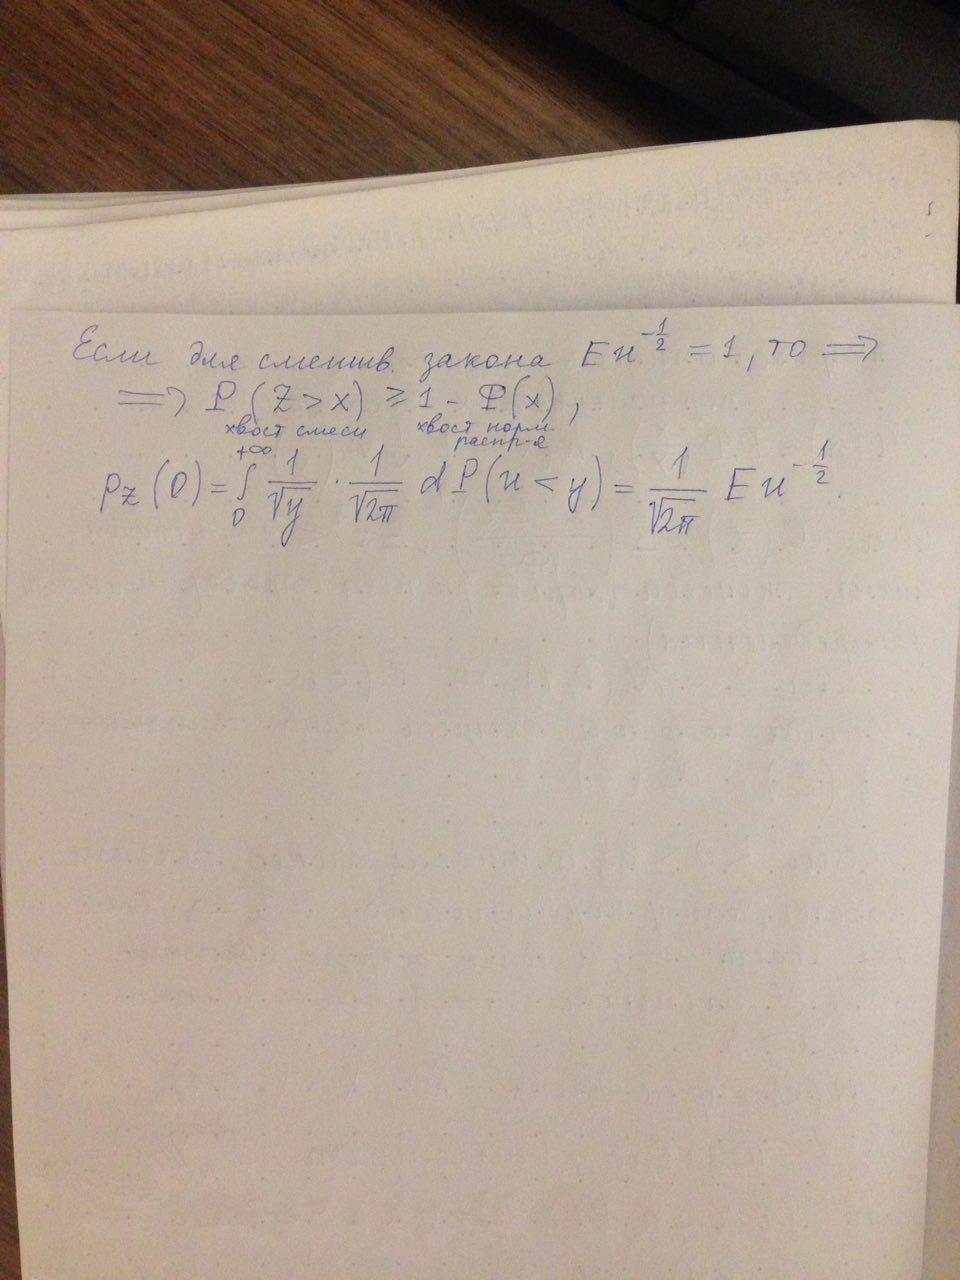 Если для смешив. закона E u^{-1/2} = 1, то ⟹
⟹ P(Z > x) ≥ 1 - Φ(x),
хвост смеси хвост норм. распр-я
p_Z(0) = ∫_0^{+∞} 1/√y · 1/√2π dP(u < y) = 1/√2π E u^{-1/2}